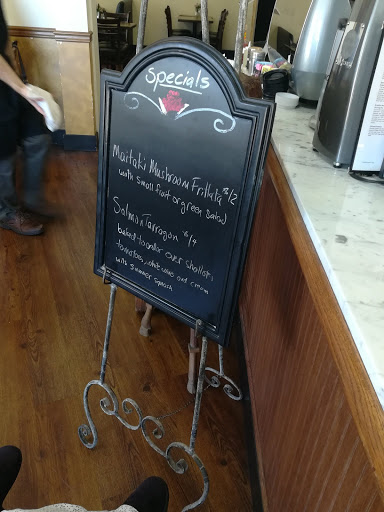 Specials
Maitaki Mushroom Frittata $12
with small fruit or green salad
Salmon Tarragon $14
baked to order over shallots
tomatoes, white wine and cream
with summer squash